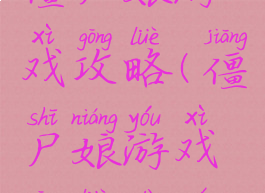 xì gōng lüè jiāng
戏攻略(僵
shī niáng yóu xì
尸娘游戏